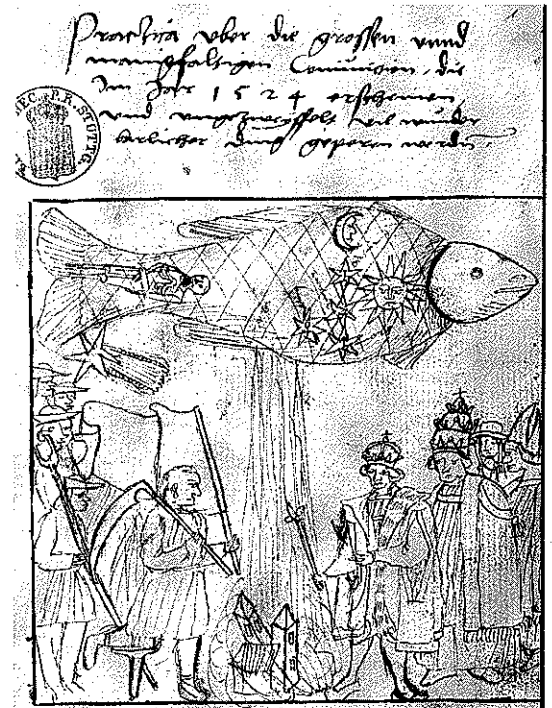 Practica vber die grossen vnnd
manigfaltigen Coniunction, die
Im Jar 1524 erscheinen,
vnd vngezweyffelt vil wunder
barlicher ding geperen werdn.
P.R. STUTTG.